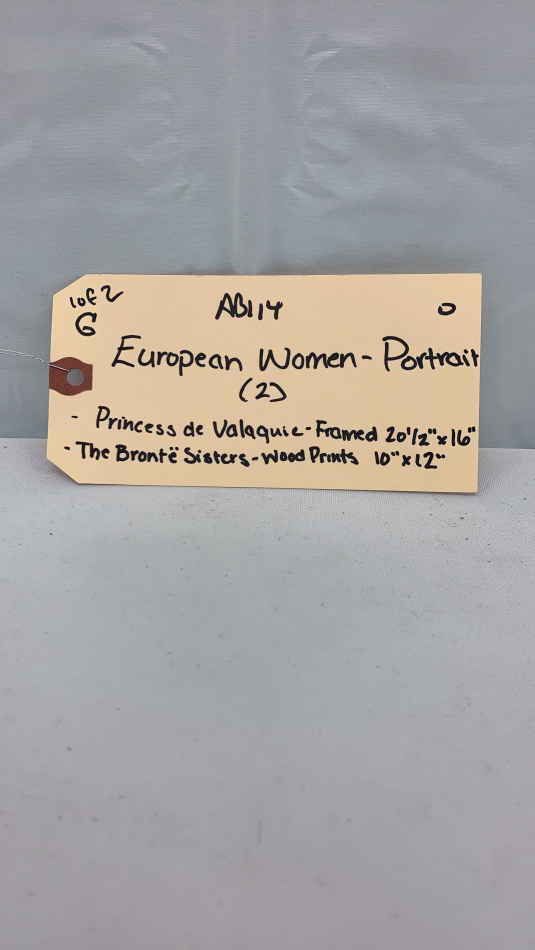 1 of 2 AB114 O
G
European Women - Portrait
(2)
- Princess de Valaquie - Framed 20 1/2" x 16"
- The Brontë Sisters - Wood Prints 10" x 12"